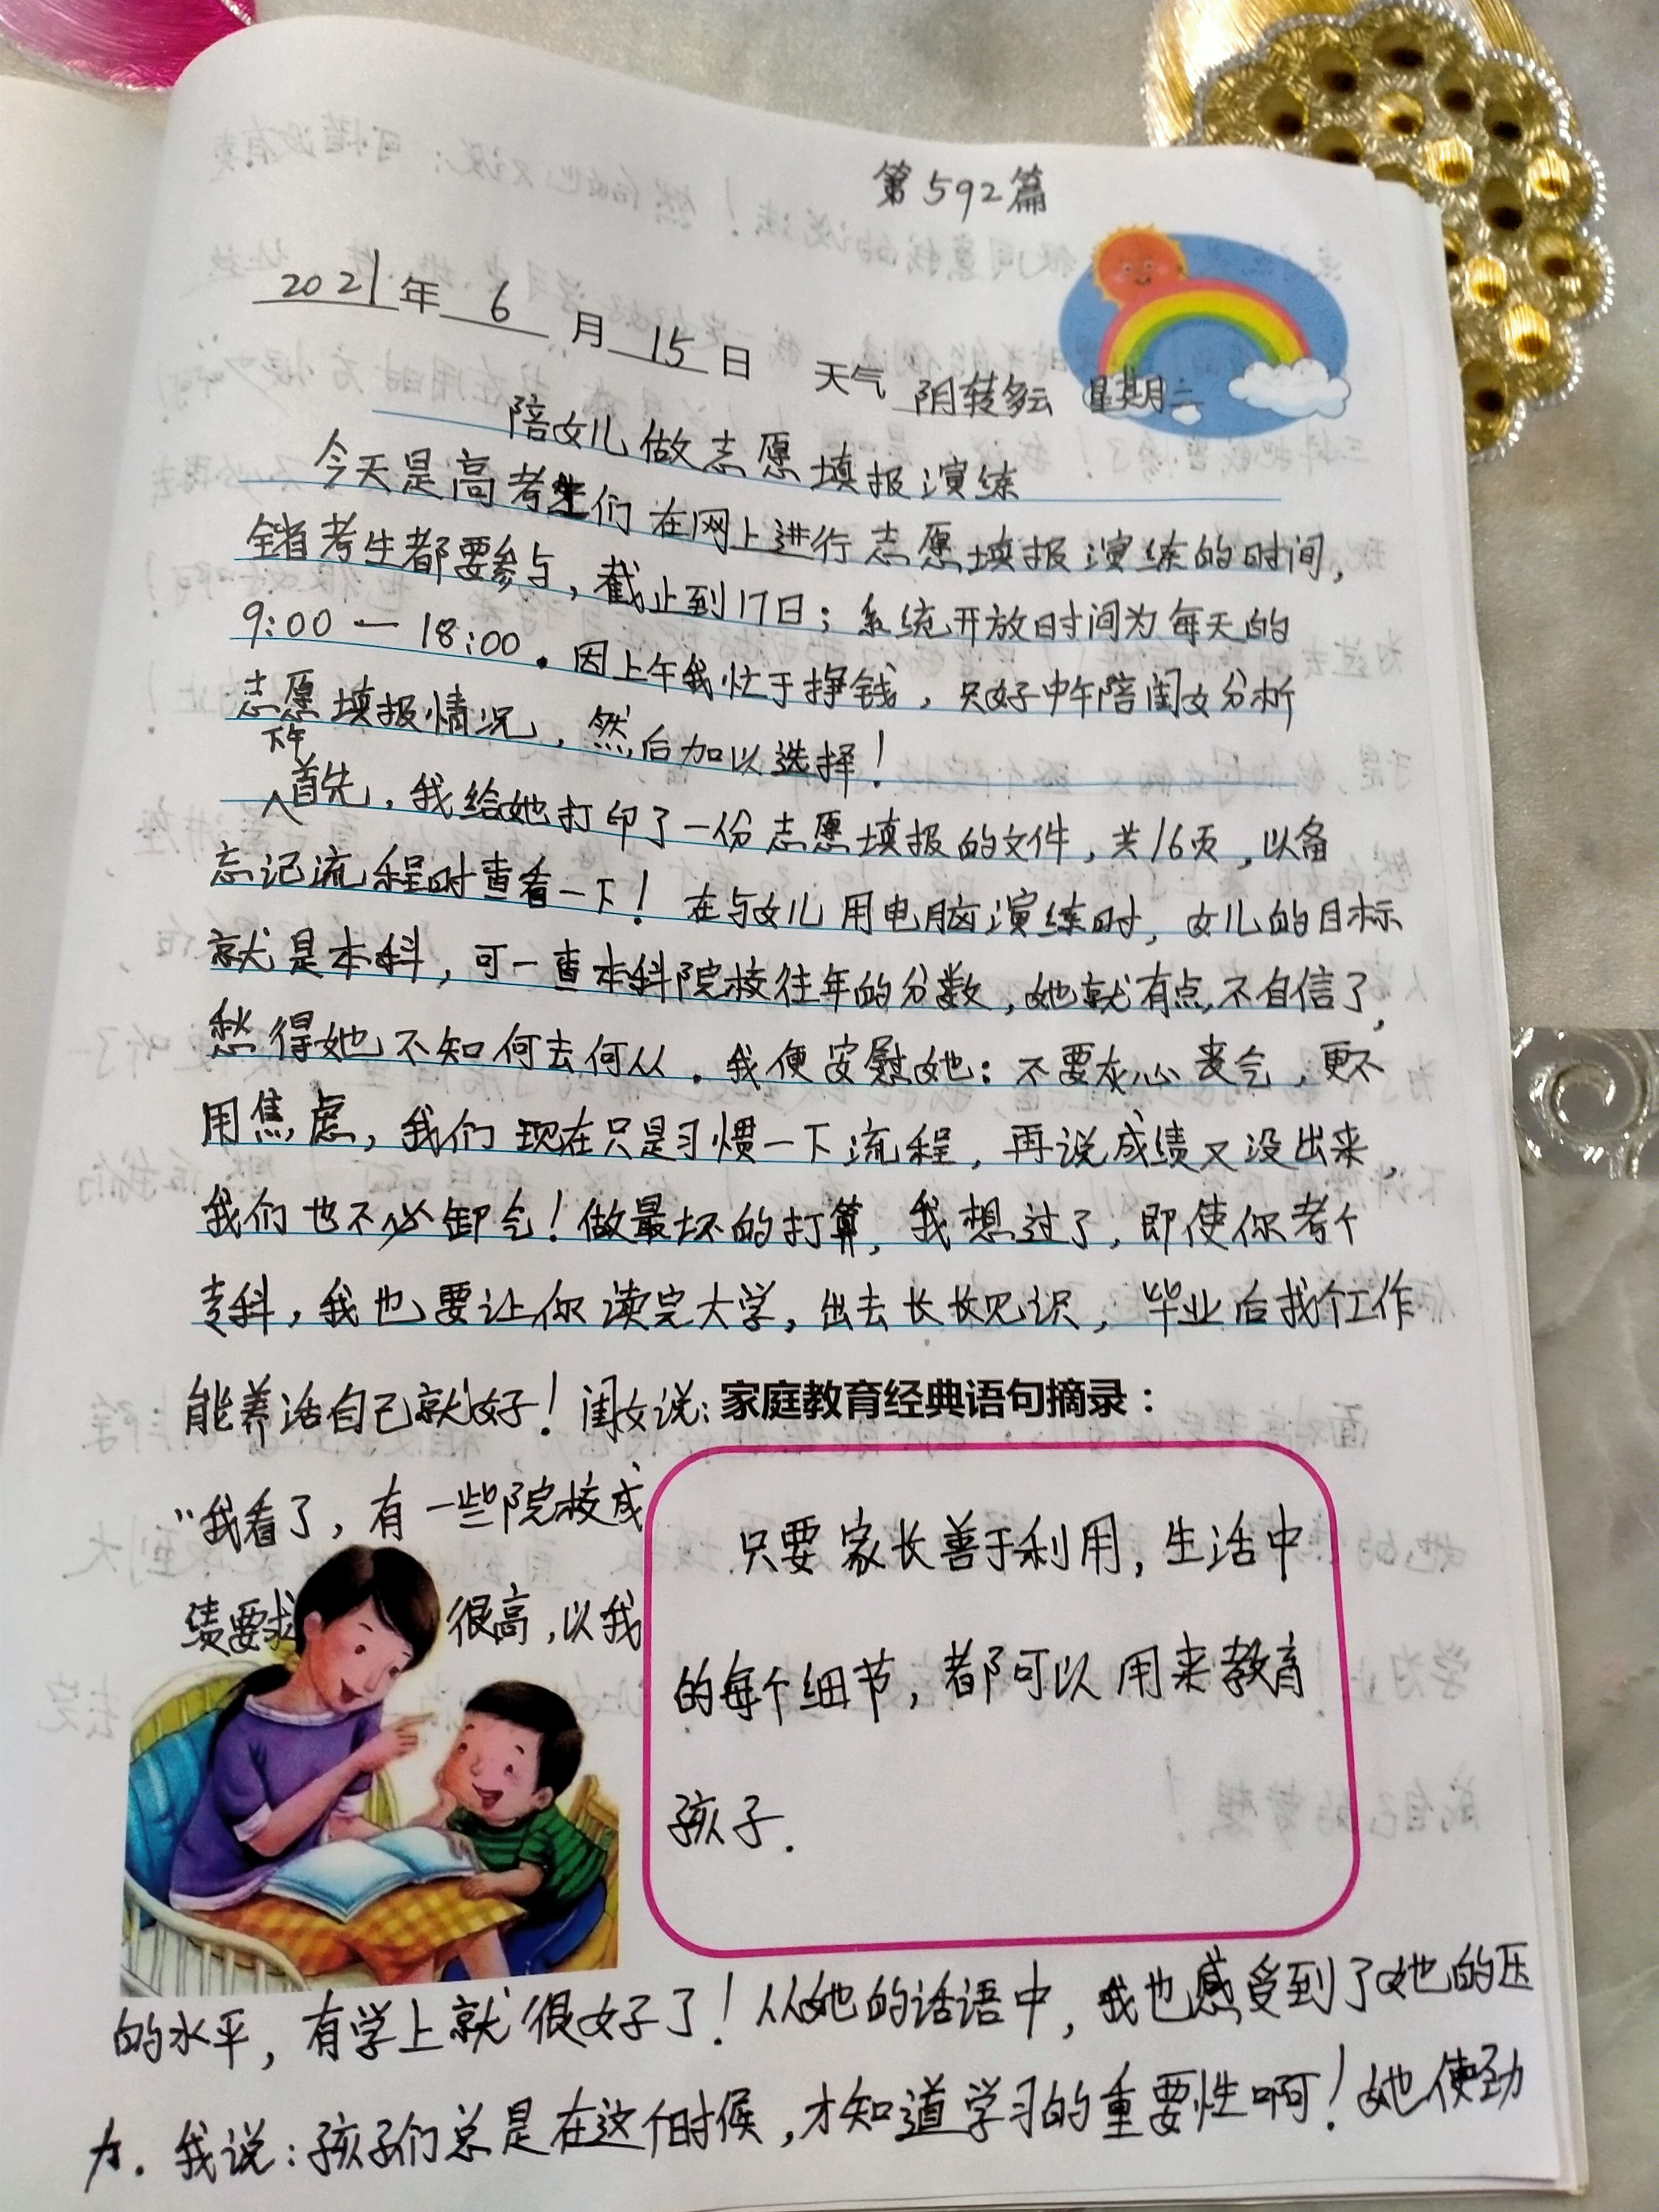 第592篇
2021年6月15日 天气 阴转多云 星期二
陪女儿做志愿填报演练
今天是高考生们在网上进行志愿填报演练的时间,
全省考生都要参与,截止到17日;系统开放时间为每天的
9:00—18:00.因上午我忙于挣钱,只好中午陪闺女分析
志愿填报情况,然后加以选择!
下午
首先,我给她打印了一份志愿填报的文件,共16页,以备
忘记流程时查看一下!在与女儿用电脑演练时,女儿的目标
就是本科,可一查本科院校往年的分数,她就有点不自信了,
愁得她不知何去何从.我便安慰她:不要灰心丧气,更不
用焦虑,我们现在只是习惯一下流程,再说成绩又没出来,
我们也不必卸气!做最坏的打算,我想过了,即使你考个
专科,我也要让你读完大学,出去长长见识,毕业后找个工作
能养活自己就好!闺女说:
"我看了,有一些院校成
绩要求很高,以我
家庭教育经典语句摘录:
只要家长善于利用,生活中
的每个细节,都可以用来教育
孩子.
的水平,有学上就很好了!从她的话语中,我也感受到了她的压
力.我说:孩子们总是在这个时候,才知道学习的重要性啊!她使劲